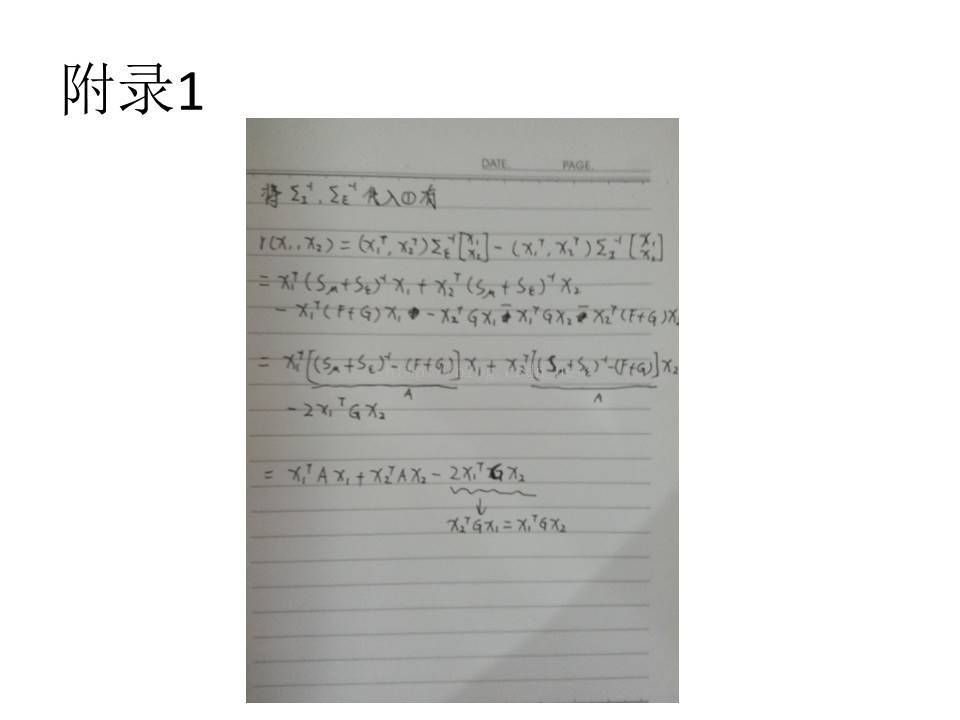 附录1
DATE. PAGE.
将 Σ_I⁻¹, Σ_E⁻¹ 代入①有
r(x₁, x₂) = (x₁ᵀ, x₂ᵀ) Σ_E⁻¹ [x₁ x₂] - (x₁ᵀ, x₂ᵀ) Σ_I⁻¹ [x₁ x₂]
= x₁ᵀ(Sμ+Sε)⁻¹x₁ + x₂ᵀ(Sμ+Sε)⁻¹x₂
- x₁ᵀ(F+G)x₁ - x₂ᵀGx₁ - x₁ᵀGx₂ - x₂ᵀ(F+G)x₂
= x₁ᵀ[(Sμ+Sε)⁻¹-(F+G)]x₁ + x₂ᵀ[(Sμ+Sε)⁻¹-(F+G)]x₂
A A
- 2x₁ᵀGx₂
= x₁ᵀAx₁ + x₂ᵀAx₂ - 2x₁ᵀGx₂
↓
x₂ᵀGx₁ = x₁ᵀGx₂